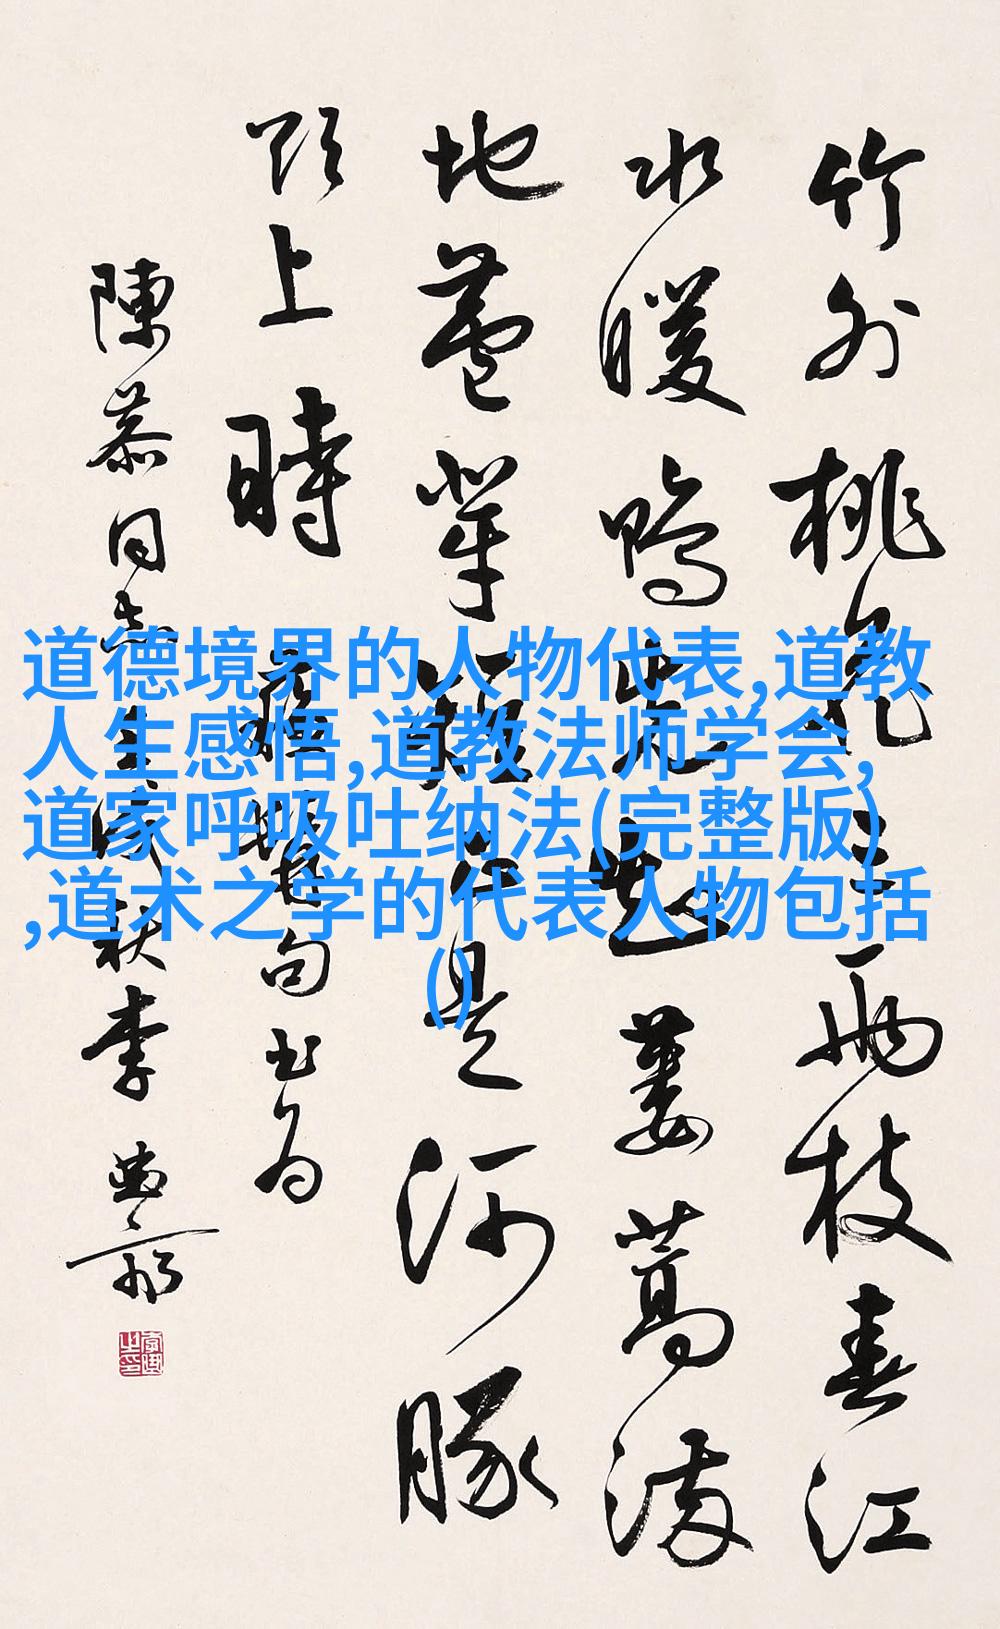 竹外桃花三兩枝春江
水暖鴨先知蔞蒿滿
地蘆芽短正是河豚
欲上時 句書为
陳恭同志 秋李
道德境界的人物代表,道教
人生感悟,道教法师学会,
道家呼吸吐纳法(完整版)
,道术之学的代表人物包括
()